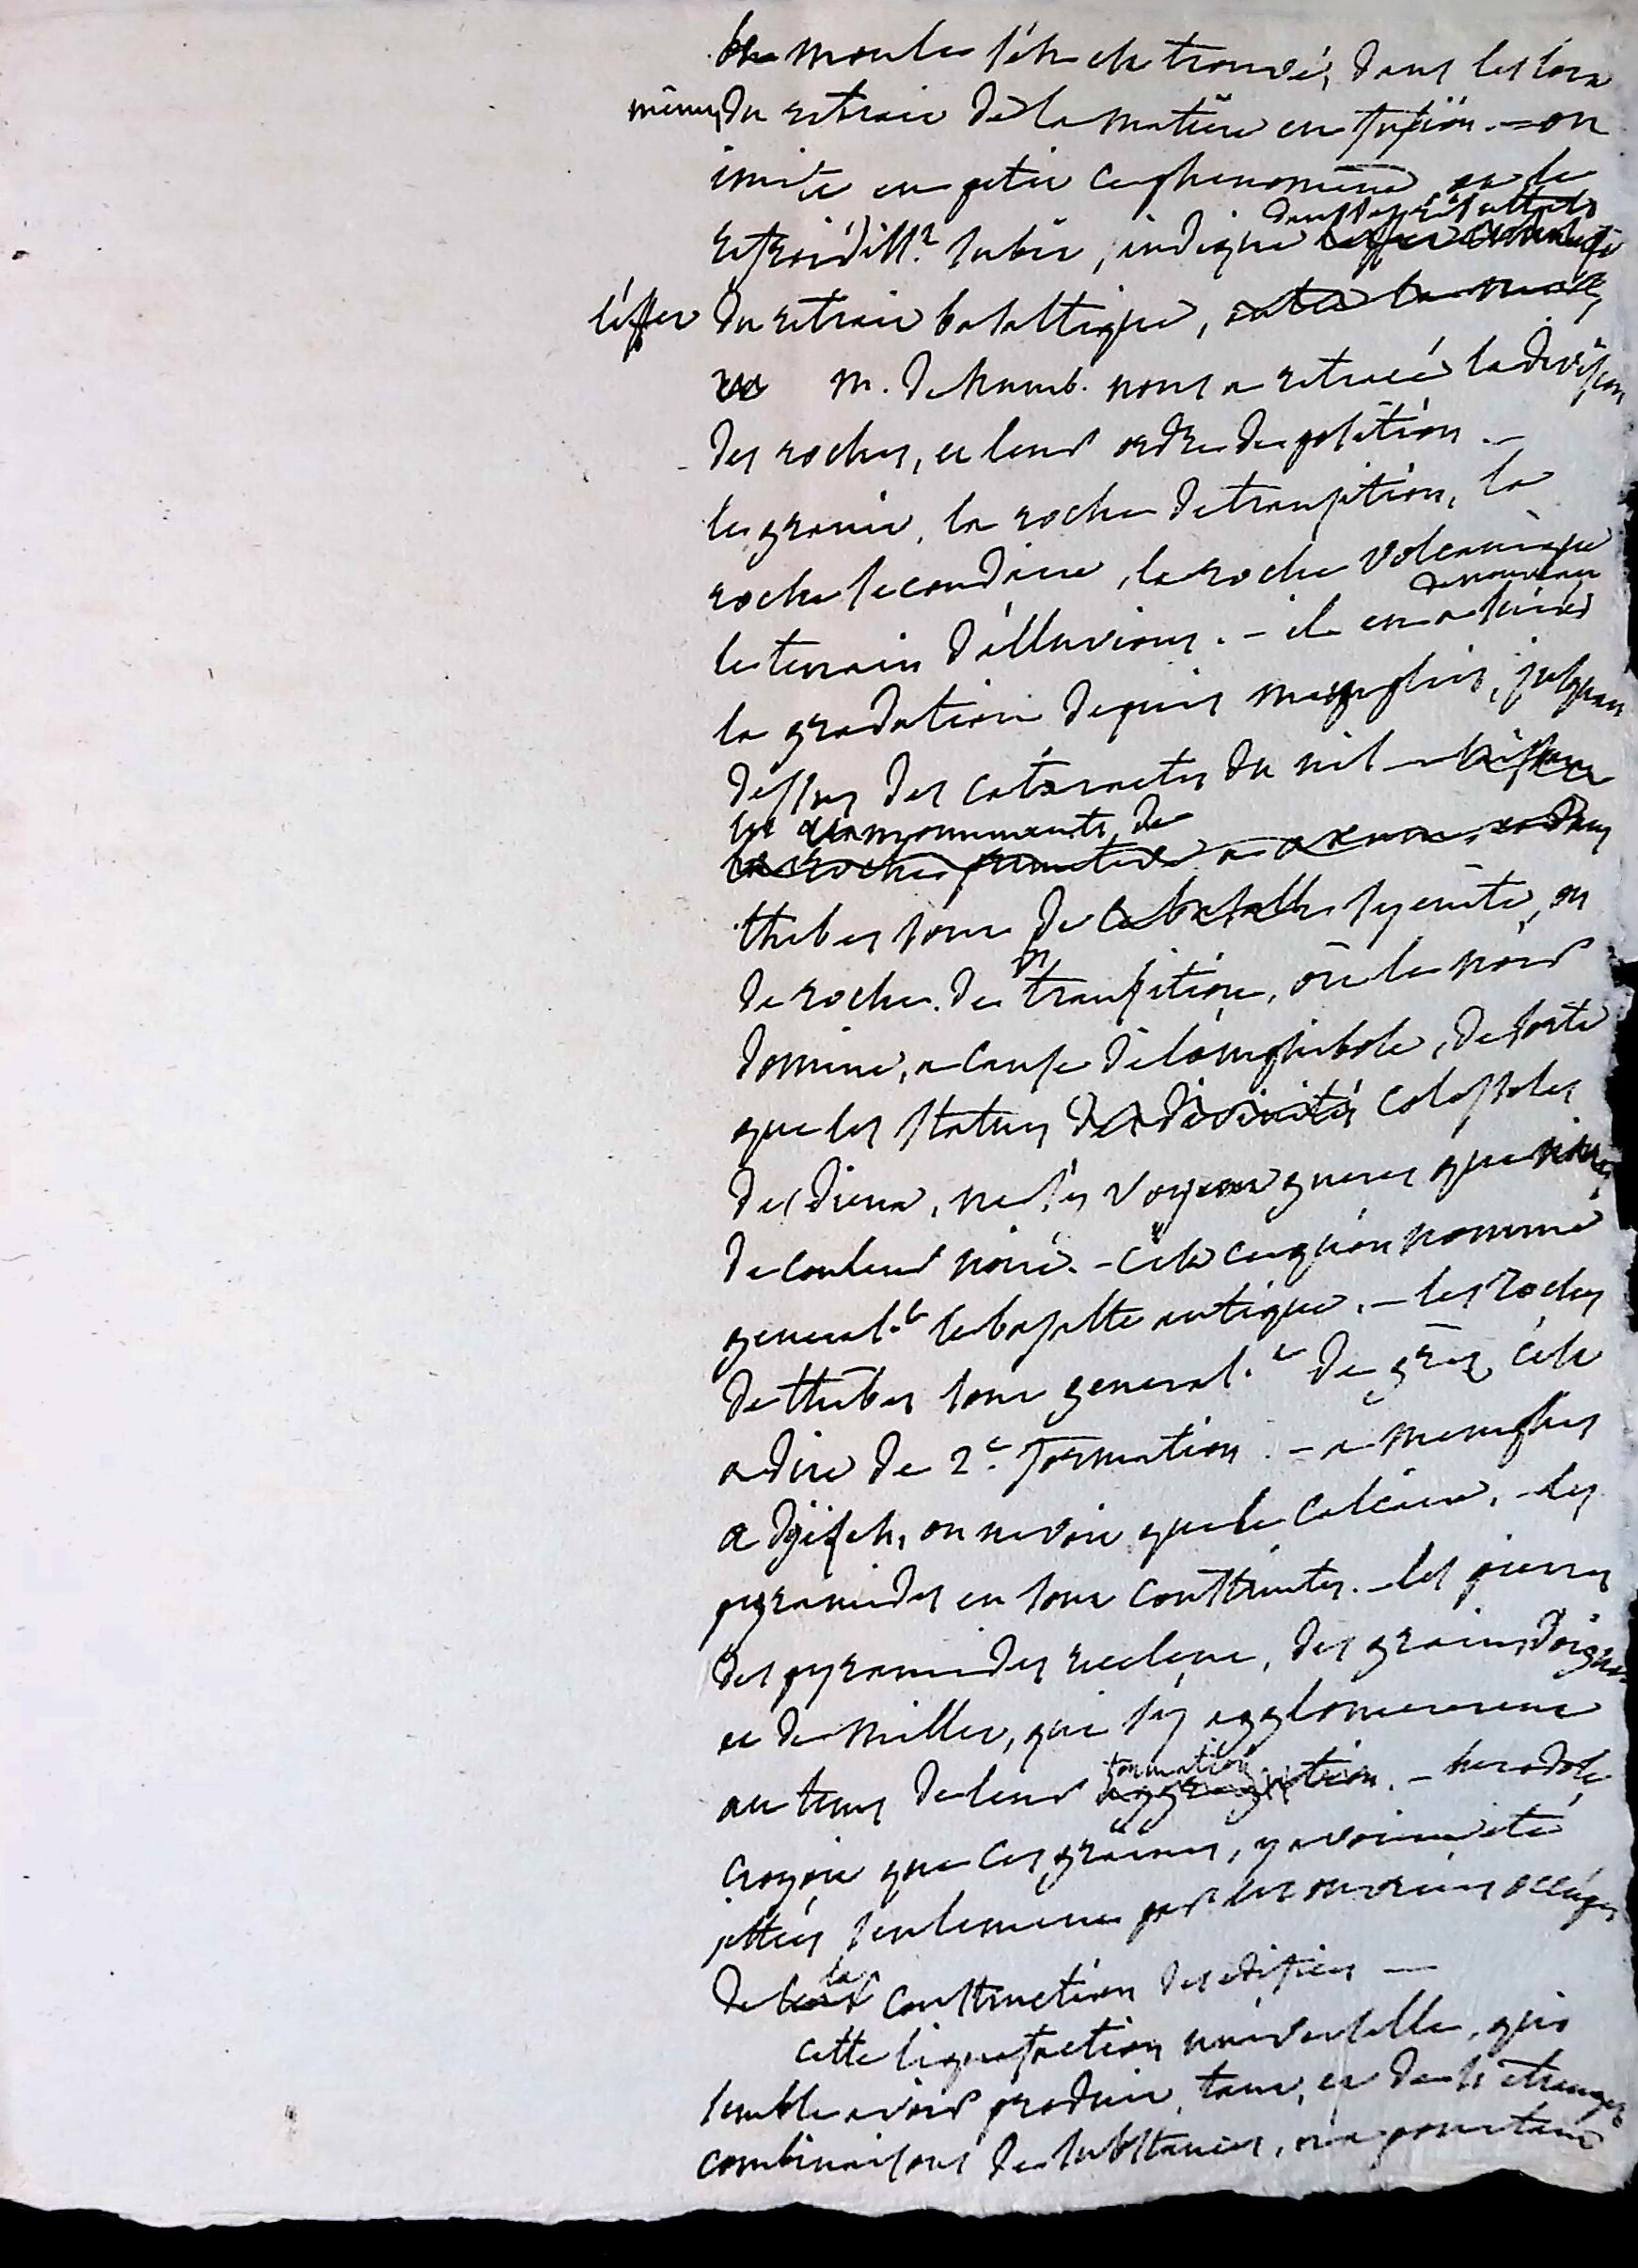 moule s'est trouvé, dans les lois
mêmes du retrait de la matiere en fusion. — on
imite en petit ce phenomene, et le
dans des resultats
refroidiss.t subit, indique
l'effet du retrait basaltique,
m. de humb. nous a retracé la division
des roches, et leur ordre de position. —
le granit, la roche de transition, la
roche secondaire, la roche volcanique
de nouveau
le terrain d'alluvions. — il en a suivi
la gradation depuis memphis, jusqu'au
dessus des cataractes du nil —
les monuments de
la roche primitive a
thebes sont de le basalte syenite, ou
de roche de transition, où le noir
domine, a cause de l'amphibole, de sorte
que les statues des divinités colossales
des dieux, ne s'y voyent gueres que
de couleur noire. — c'est ce qu'on nomme
general.t le basalte antique. — les roches
de thebes sont general.t de grès, c'est
a dire de 2.e formation. — a memphis
a djizeh, on ne voit que le calcaire. — les
pyramides en sont construites. — les pierres
des pyramides recelent, des grains d'orge
et de millet, qui s'y agglomererent
formation
au tems de leur aggregation. — herodote
croyoit que ces graines, y avoient été
jettées seulement par les ouvriers occupés
la
de leur construction des edifices —
cette liquefaction universelle, qui
semble avoir produit, tant, et de si etranges
combinaisons de substances, n'a pourtant